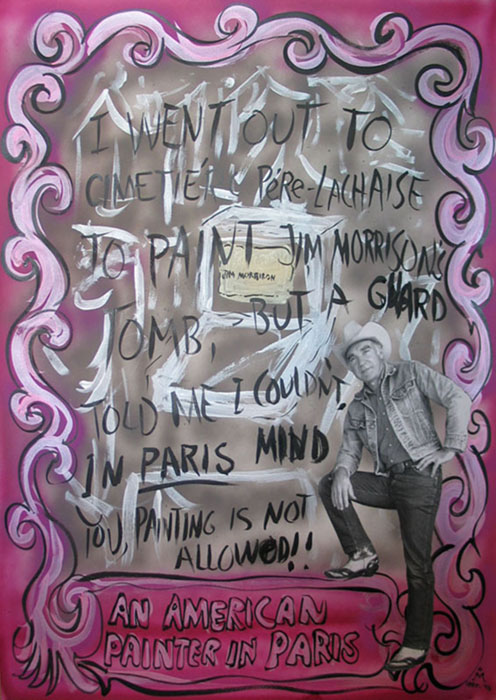 I WENT OUT TO
CIMETIÉR PÉRE-LACHAISE
TO PAINT JIM MORRISON'S
JIM MORRISON
TOMB, BUT A GUARD
TOLD ME I COULDN'T.
IN PARIS MIND
YOU, PAINTING IS NOT
ALLOWED!!
AN AMERICAN
PAINTER IN PARIS